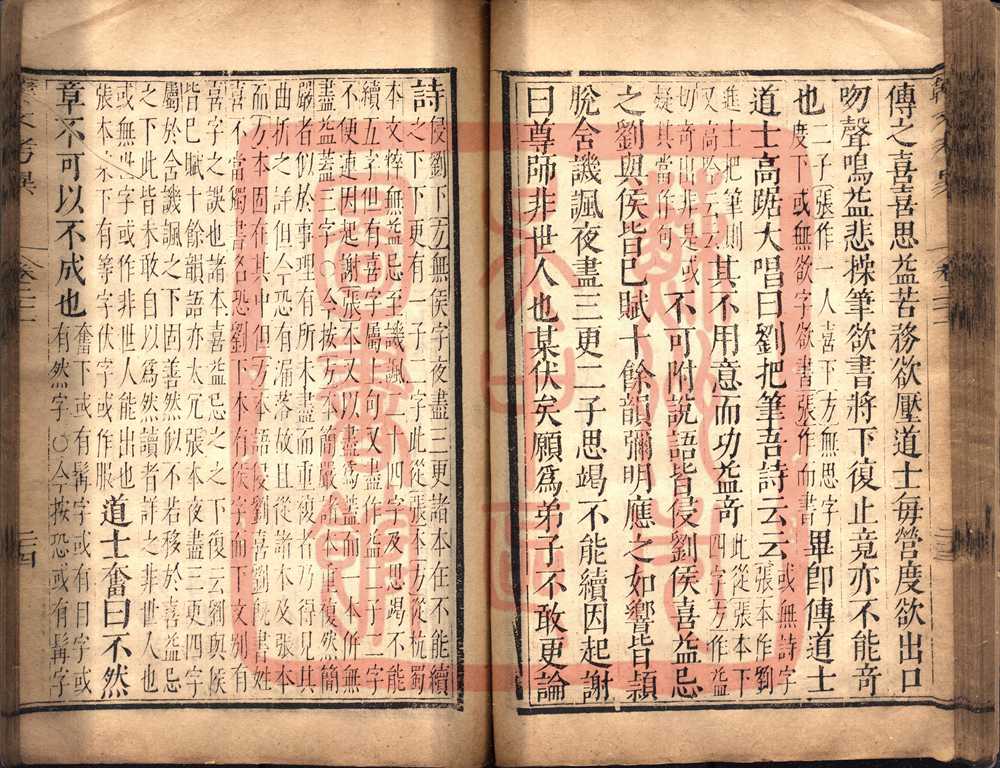 傳之喜喜思益苦務欲壓道士每營度欲出口
吻聲鳴益悲操筆欲書將下復止竟亦不能奇
也二子張作一人喜下方無思字
度下或無欲字欲書張作而書畢即傳道士
道士高踞大唱曰劉把筆吾詩云云或無詩字
張本作劉
進士把筆則
又高吟云云其不用意而功益奇此從張本下
四字方作益
切奇出非是或
疑其當作句不可附說語皆侵劉侯喜益忌
之劉與侯皆已賦十餘韻彌明應之如響皆穎
脫含譏諷夜盡三更二子思竭不能續因起謝
曰尊師非世人也某伏矣願爲弟子不敢更論
詩侵劉下方無侯字夜盡三更諸本在不能續
之下下更有二子二字此從張本方從杭蜀
本文粹無益忌至譏諷二十四字及思竭不能
續五字但有喜字屬上句又盡作益二子二字
不便連因起謝張本又以盡爲蓋而一本併無
盡益蓋三字○今按方本簡嚴諸本重複然簡
嚴者似於事理有所未盡而重複者乃得見其
曲折之詳但今恐有漏落故且從諸本及張本
而方本固在其中但方本語侵劉喜劉既書姓
喜不當獨書名恐劉下本有侯字而下文別有
喜字之誤也諸本喜益忌之之下復云劉與侯
皆已賦十餘韻語亦太冗張本夜盡三更四字
屬於含譏諷之下固善然似不若移於喜益忌
之下此皆未敢自以爲然讀者詳之非世人也
或無世字或作非世人能出也
張本某下有等字伏字或作服道士奮曰不然
章不可以不成也奮下或有髯字或有目字或
有然字○今按恐或有髯字